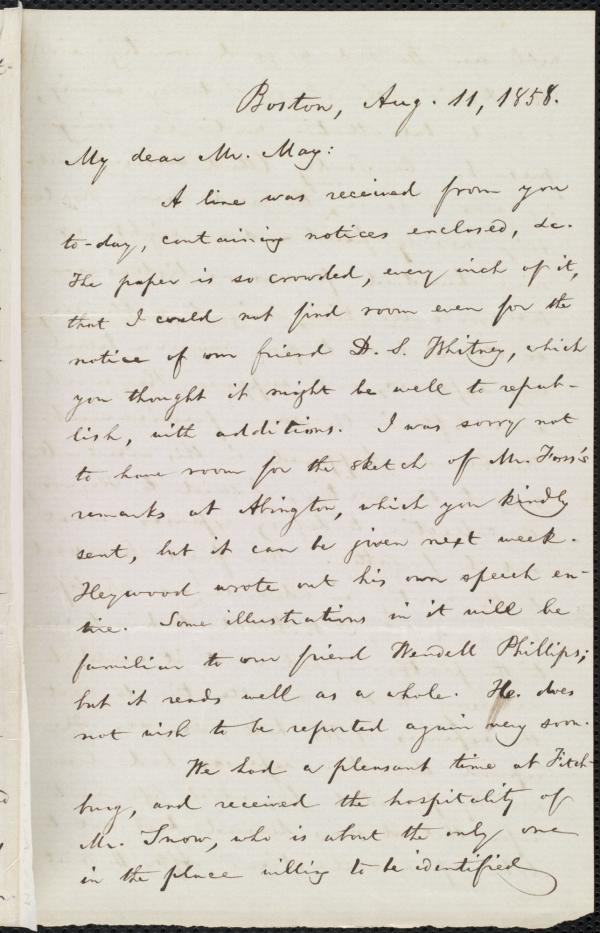 Boston, Aug. 11, 1858.
My dear Mr. May:
A line was received from you
to-day, containing notices enclosed, &c.
The paper is so crowded, every inch of it,
that I could not find room even for the
notice of our friend D. S. Whitney, which
you thought it might be well to repub-
lish, with additions. I was sorry not
to have room for the sketch of Mr. Foss's
remarks at Abington, which you kindly
sent, but it can be given next week.
Heywood wrote out his own speech en-
tire. Some illustrations in it will be
familiar to our friend Wendell Phillips;
but it reads well as a whole. He does
not wish to be reported again very soon.
We had a pleasant time at Fitch-
burg, and received the hospitality of
Mr. Snow, who is about the only one
in the place willing to be identified